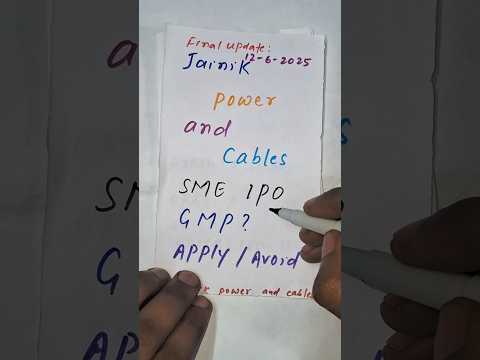 Final update:
Jainik 12-6-2025
power
and
Cables
SME IPO
GMP?
APPly / Avoid
power and cables